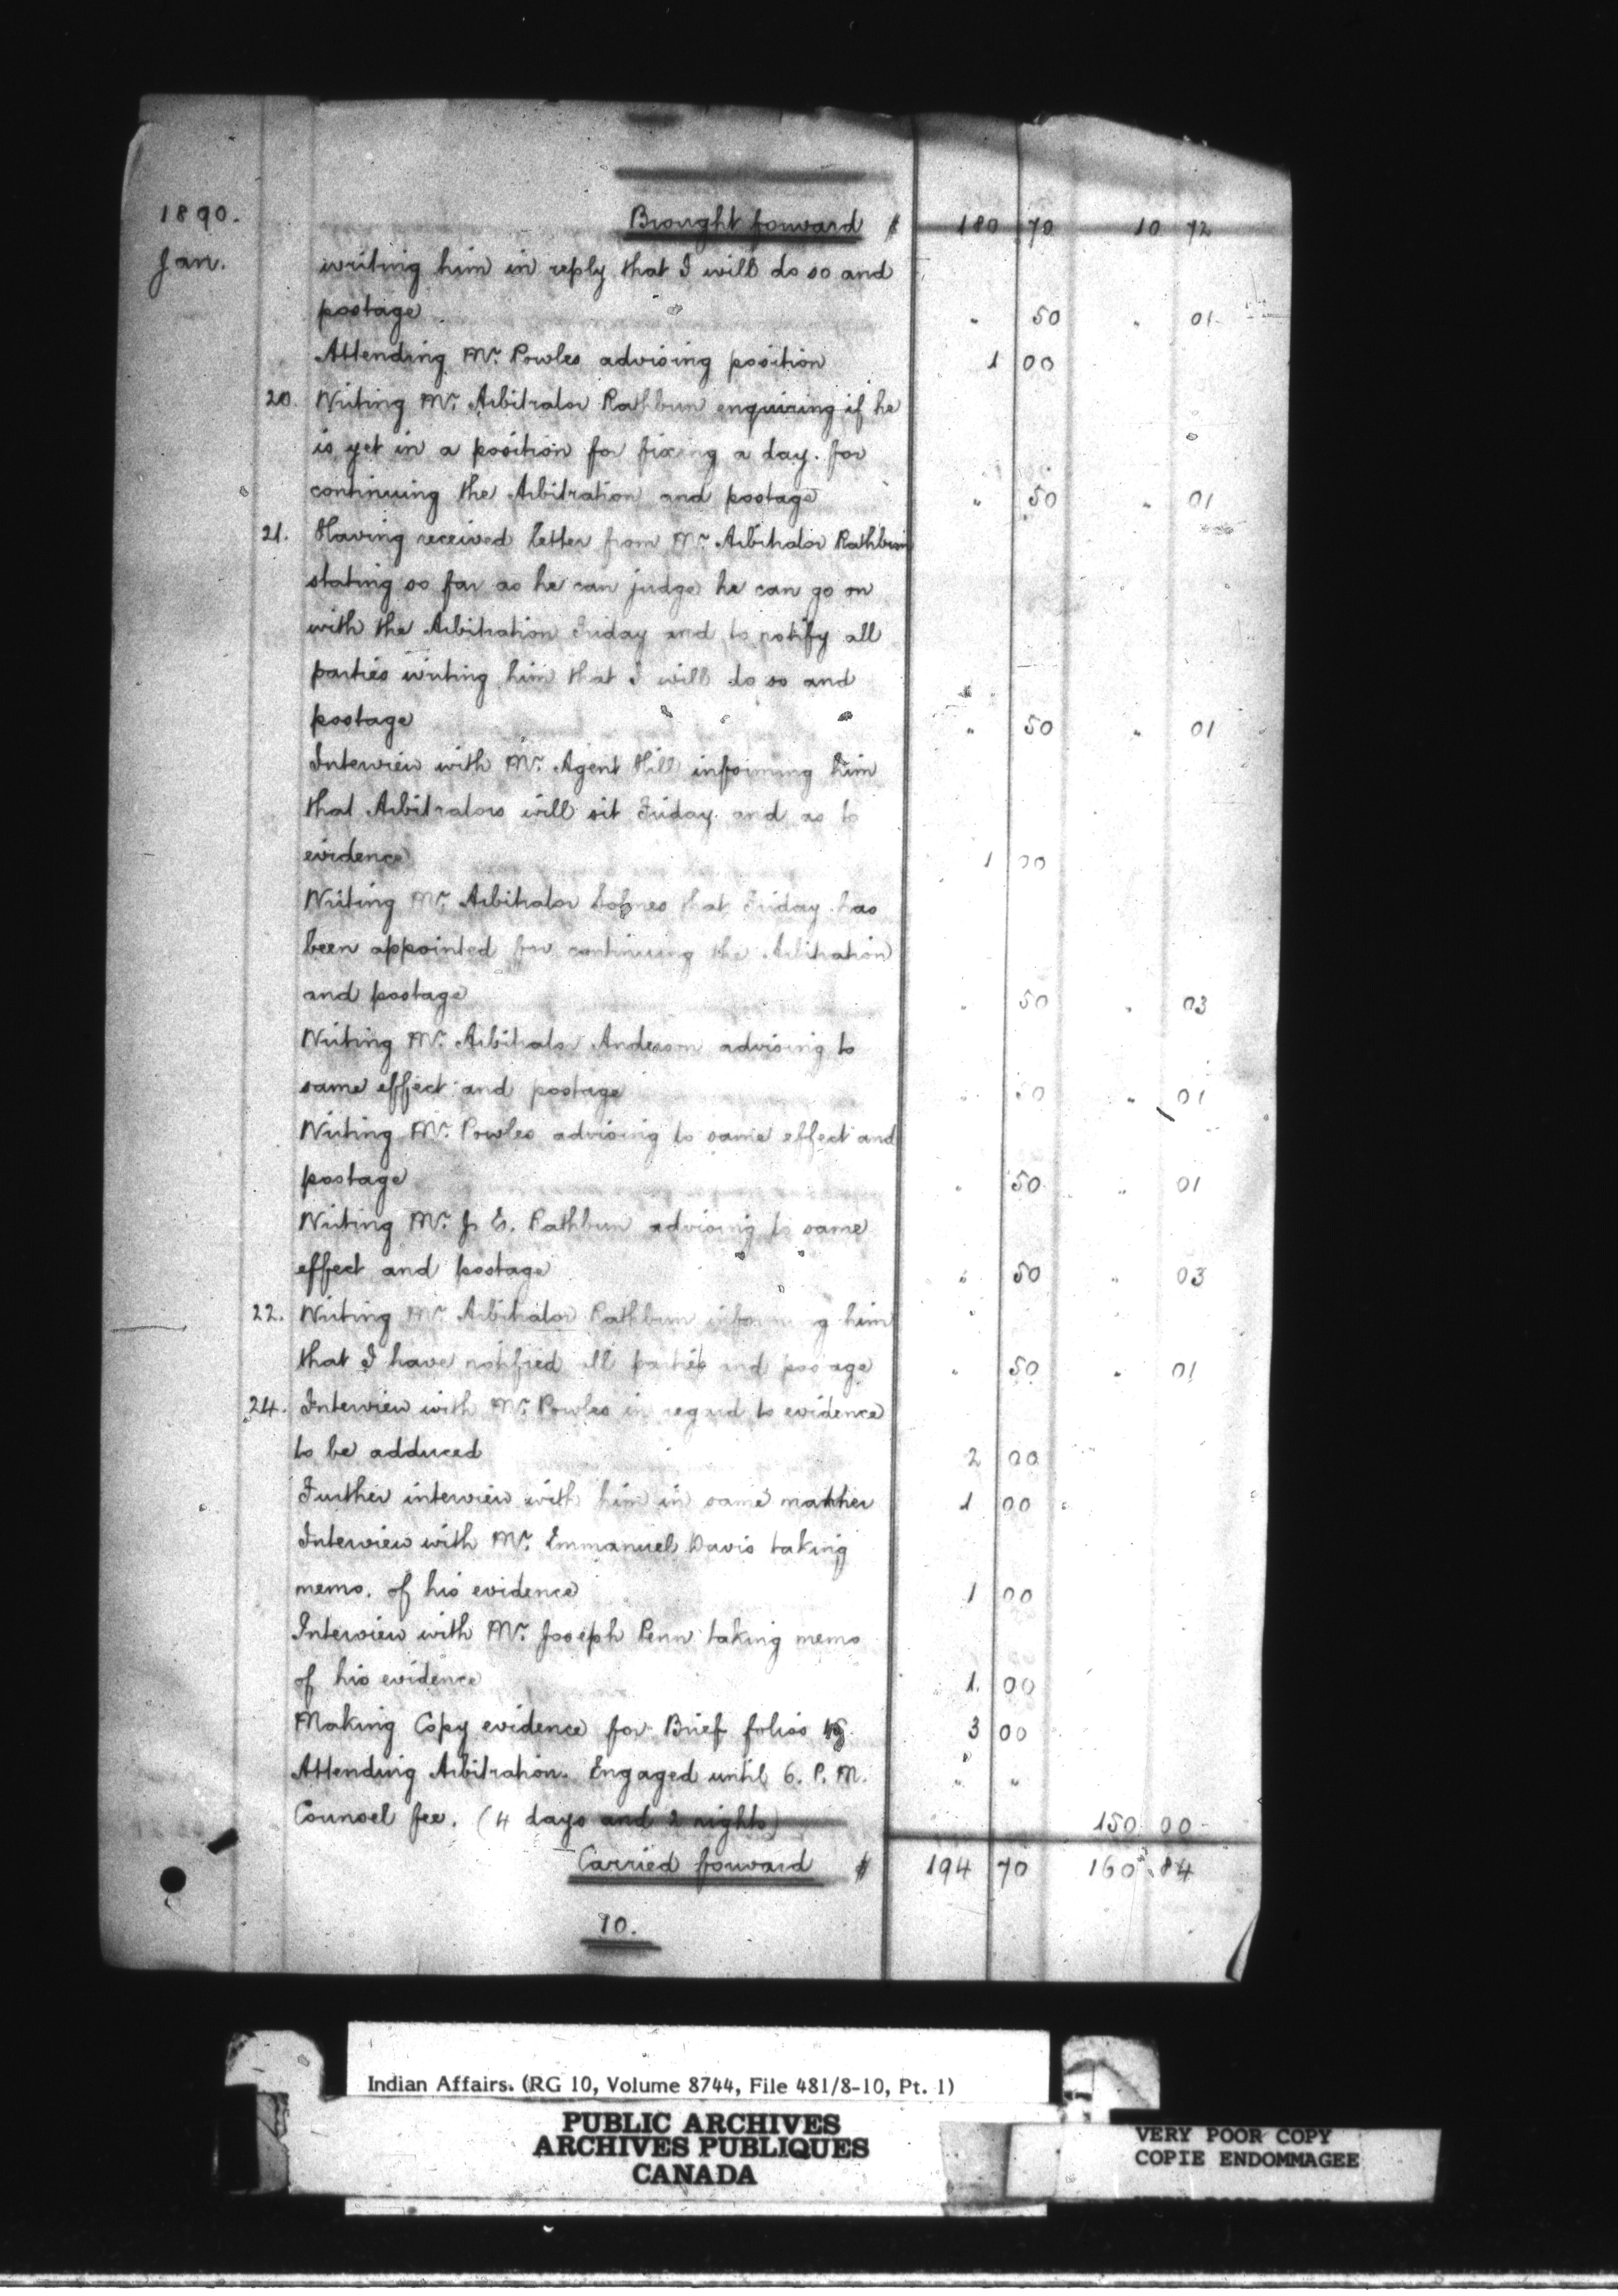 1890. Brought forward $ 180 70 10 72
Jan. writing him in reply that I will do so and
postage " 50 " 01
Attending Mr. Powles advising position 1 00
20. Writing Mr. Arbitrator Rathbun enquiring if he
is yet in a position for fixing a day for
continuing the Arbitration and postage " 50 " 01
21. Having received letter from Mr. Arbitrator Rathbun
stating so far as he can judge he can go on
with the Arbitration Friday and to notify all
parties writing him that I will do so and
postage " 50 " 01
Interview with Mr. Agent Hill informing him
that Arbitrators will sit Friday and as to
evidence 1 00
Writing Mr. Arbitrator that Friday has
been appointed for continuing the Arbitration
and postage " 50 " 03
Writing Mr. Arbitrator Anderson advising to
same effect and postage " 50 " 01
Writing Mr. Powles advising to same effect and
postage " 50 " 01
Writing Mr. J. E. Rathbun advising to same
effect and postage " 50 " 03
22. Writing Mr. Arbitrator Rathbun informing him
that I have notified all parties and postage " 50 " 01
24. Interview with Mr. Powles in regard to evidence
to be adduced 2 00
Further interview with him in same matter 1 00
Interview with Mr. Emmanuel Davis taking
memo. of his evidence 1 00
Interview with Mr. Joseph Penn taking memo
of his evidence 1. 00
Making Copy evidence for Brief folios 15. 3 00
Attending Arbitration. Engaged until 6. P. M. " "
Counsel fee. (4 days and 2 nights) 150 00
Carried forward $ 194 70 160 84
10.
Indian Affairs. (RG 10, Volume 8744, File 481/8-10, Pt. 1)
PUBLIC ARCHIVES
ARCHIVES PUBLIQUES
CANADA
VERY POOR COPY
COPIE ENDOMMAGEE